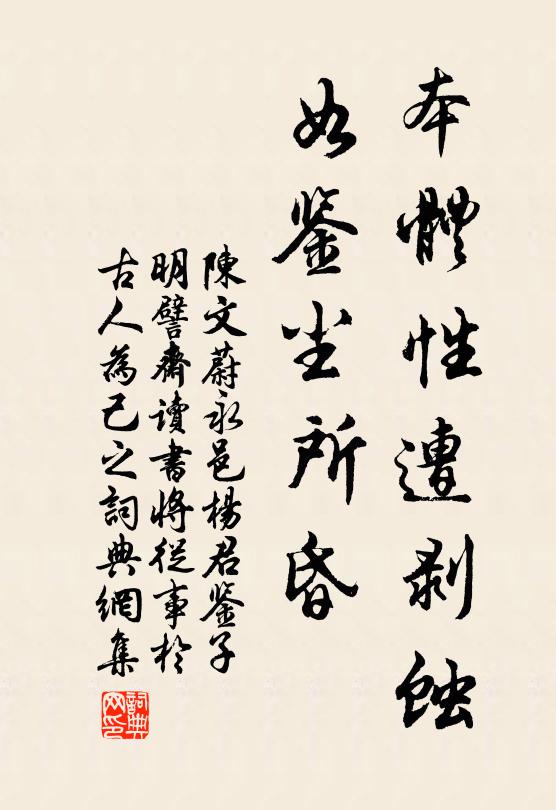 本體性遭剥蝕
如鉴尘所昏
陳文蔚永邑楊君鉴子
明譬齋讀書將從事於
古人為己之詞典網集
詞典
网印